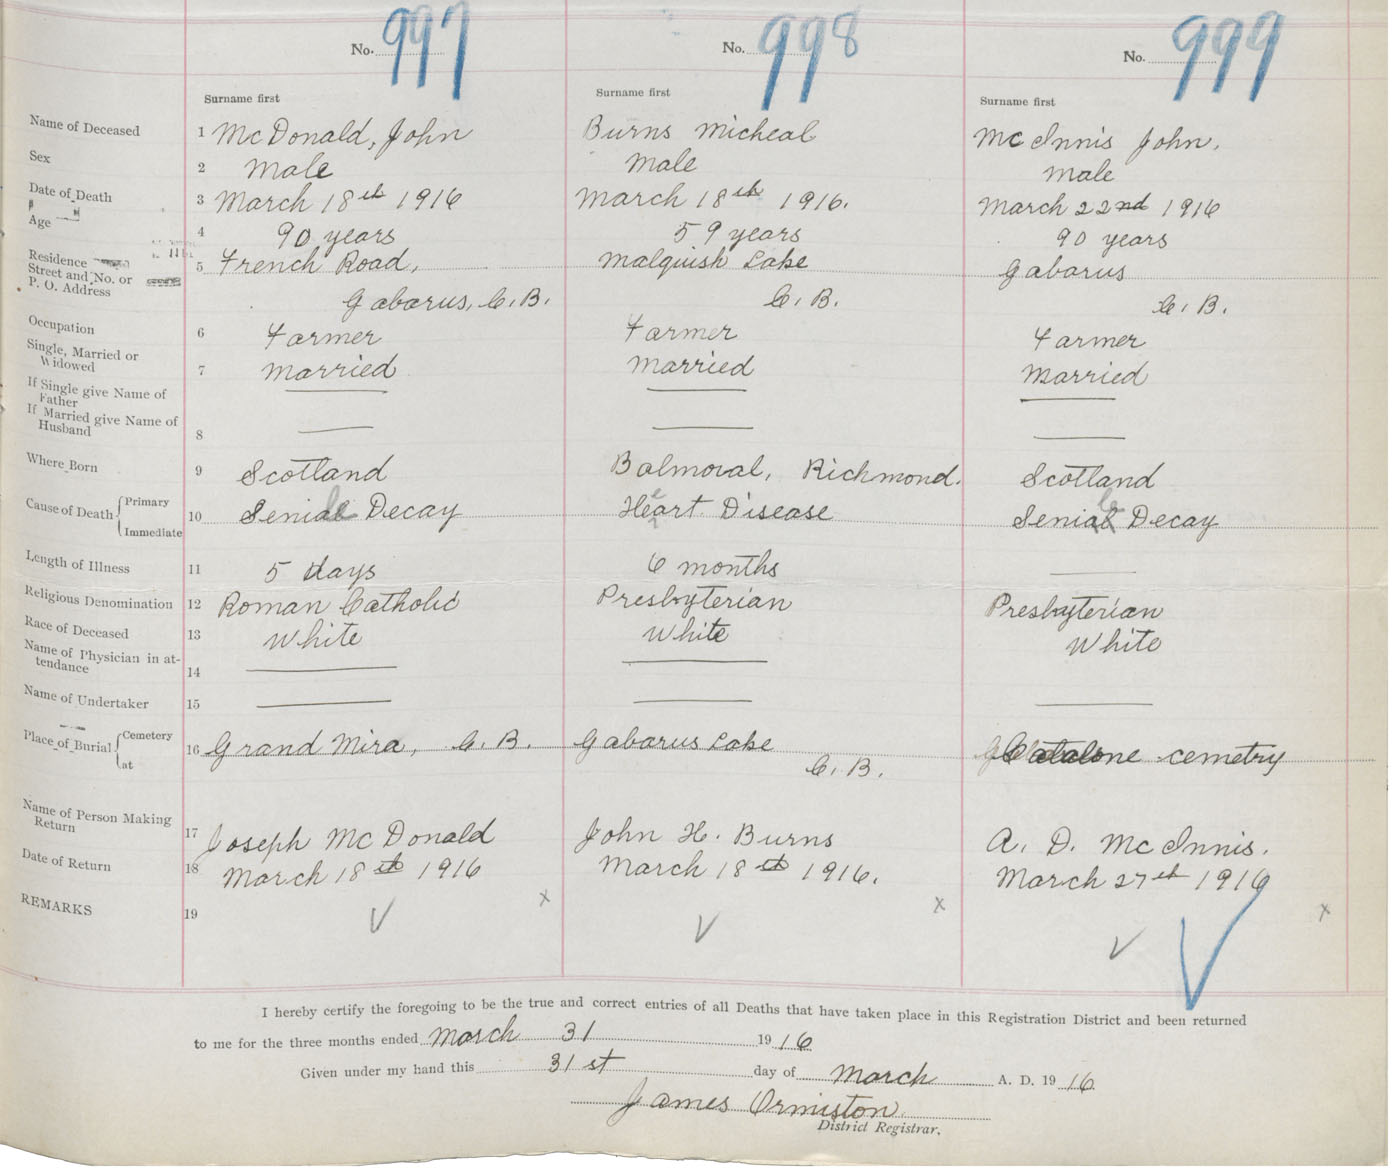 No. 997
No. 998
No. 999
Surname first
Surname first
Surname first
Name of Deceased 1 McDonald, John
Burns Micheal
McInnis John.
Sex 2 Male
Male
Male
Date of Death 3 March 18th 1916
March 18th 1916.
March 22nd 1916
Age 4 90 years
59 years
90 years
Residence
Street and No. or
P. O. Address
5 French Road,
Gabarus, C. B.
Malquish Lake
C. B.
Gabarus
C. B.
Occupation 6 Farmer
Farmer
Farmer
Single, Married or
Widowed
7 Married
Married
Married
If Single give Name of
Father
If Married give Name of
Husband
8
Where Born 9 Scotland
Balmoral, Richmond.
Scotland
Cause of Death { Primary
Immediate
10 Senile Decay
Heart Disease
Senile Decay
Length of Illness 11 5 days
6 months
Religious Denomination 12 Roman Catholic
Presbyterian
Presbyterian
Race of Deceased 13 White
White
White
Name of Physician in at-
tendance
14
Name of Undertaker 15
Place of Burial { Cemetery
at
16 Grand Mira, C. B.
Gabarus Lake
C. B.
Catalone cemetry
Name of Person Making
Return
17 Joseph McDonald
John H. Burns
A. D. McInnis.
Date of Return 18 March 18th 1916
March 18th 1916.
March 27th 1916
REMARKS 19
I hereby certify the foregoing to be the true and correct entries of all Deaths that have taken place in this Registration District and been returned
to me for the three months ended March 31 1916
Given under my hand this 31st day of March A. D. 1916
James Ormiston
District Registrar.